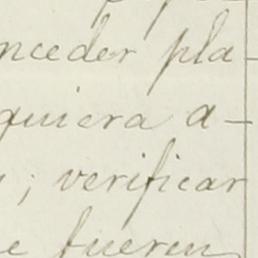 nceder pla-
quiera a-
; verificar
e fueren